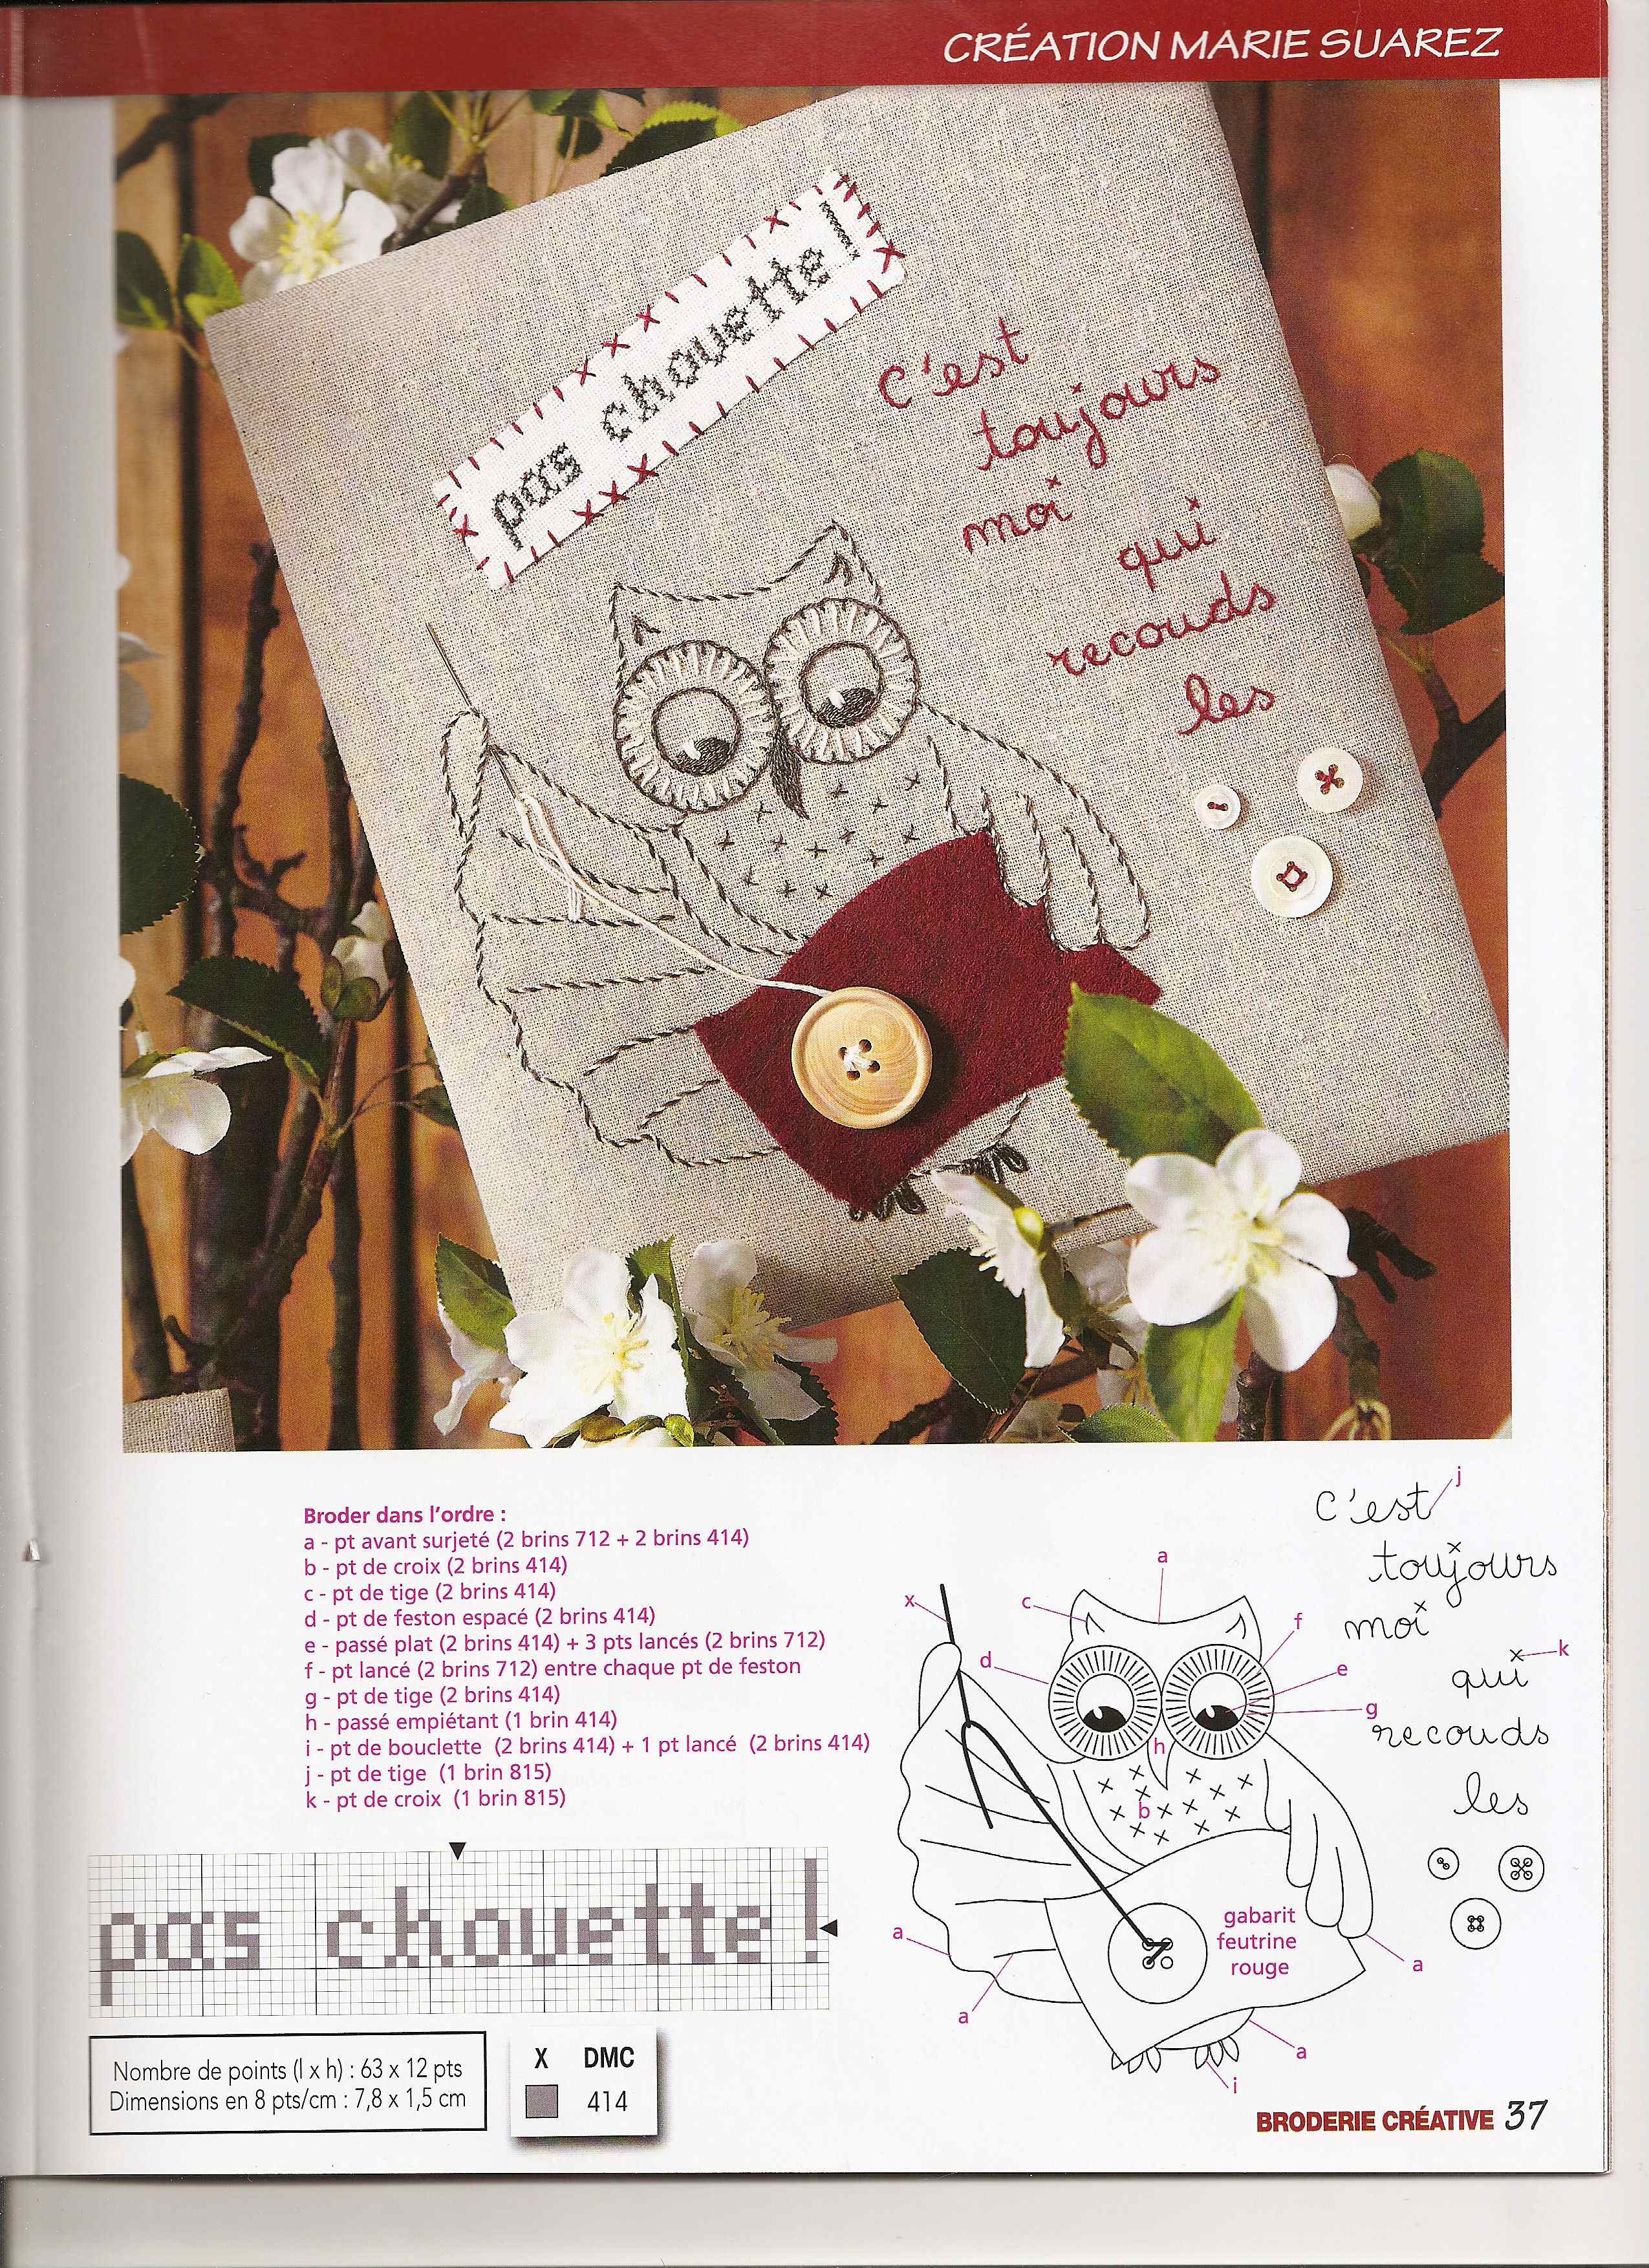 CRÉATION MARIE SUAREZ
pas chouette !
c'est
toujours
moi
qui
recouds
les
Broder dans l'ordre :
a - pt avant surjeté (2 brins 712 + 2 brins 414)
b - pt de croix (2 brins 414)
c - pt de tige (2 brins 414)
d - pt de feston espacé (2 brins 414)
e - passé plat (2 brins 414) + 3 pts lancés (2 brins 712)
f - pt lancé (2 brins 712) entre chaque pt de feston
g - pt de tige (2 brins 414)
h - passé empiétant (1 brin 414)
i - pt de bouclette (2 brins 414) + 1 pt lancé (2 brins 414)
j - pt de tige (1 brin 815)
k - pt de croix (1 brin 815)
pas chouette !
Nombre de points (l x h) : 63 x 12 pts
Dimensions en 8 pts/cm : 7,8 x 1,5 cm
X DMC
414
j
c'est
toujours
moi
k
qui
recouds
les
a
x
c
f
d
e
g
h
b
gabarit
feutrine
rouge
a
a
a
a
i
BRODERIE CRÉATIVE 37